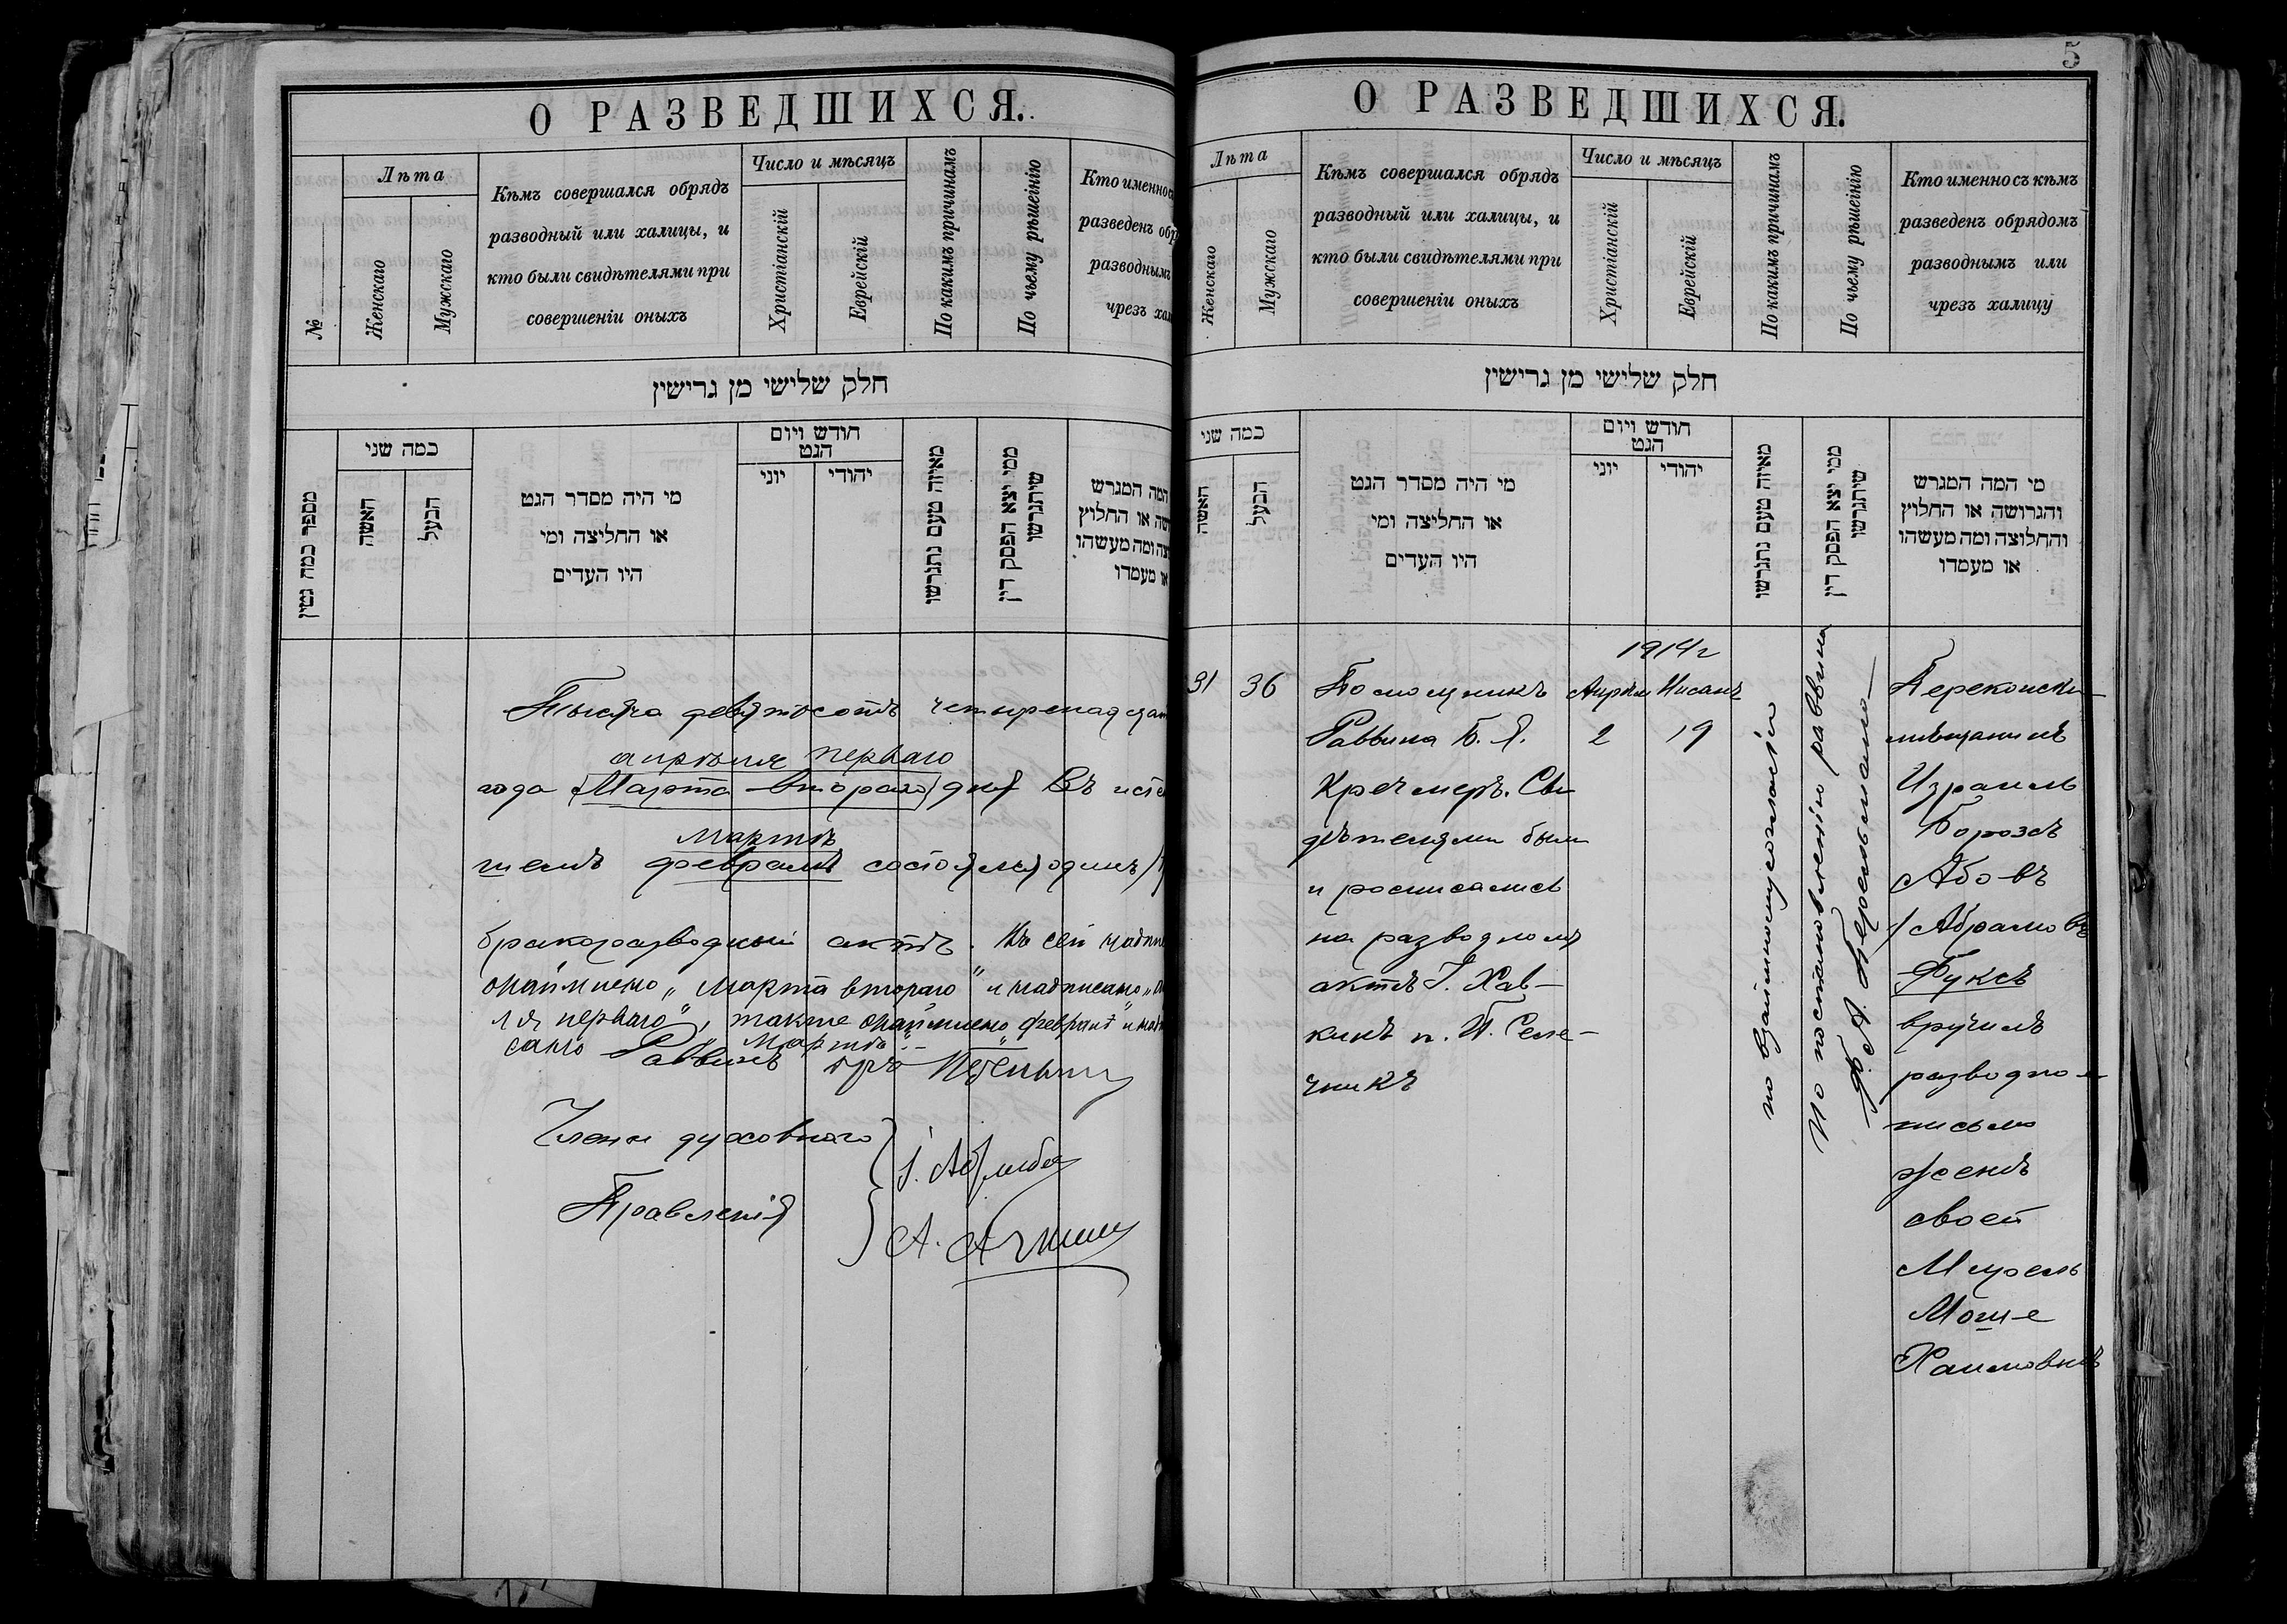 О РАЗВЕДШИХСЯ.
№
Лѣта
Женскаго
Мужскаго
Кѣмъ совершался обрядъ
разводный или халицы, и
кто были свидѣтелями при
совершеніи оныхъ
Число и мѣсяцъ
Христіанскій
Еврейскій
По какимъ причинамъ
По чьему рѣшенію
Кто именно с
разведенъ обр
разводнымъ
чрезъ хал
חלק שלישי מן גרישין
מספר כמה גטין
כמה שני
האשה
הבעל
מי היה מסדר הגט
או החליצה ומי
היו העדים
חודש ויום
הגט
יוני
יהודי
מאיזה טעם נתגרשו
ממי יצא הפסק דין
שיתגרשו
המה המגרש
שה או החלוץ
צה ומה מעשהו
או מעמדו
Тысяча девятьсотъ четыренадцат
апрѣля перваго
года Марта втораго дня Въ исте
мартѣ
шемъ февралѣ состоялся одинъ
бракоразводный актъ. Въ сей надпи
окаймлено „Марта втораго" и надписано „ап
ля перваго", также окаймлено февралѣ и надп
сано „Мартѣ".
Раввинъ
Члены духовнаго
Правленія
А.
5
О РАЗВЕДШИХСЯ.
Лѣта
Женскаго
Мужскаго
Кѣмъ совершался обрядъ
разводный или халицы, и
кто были свидѣтелями при
совершеніи оныхъ
Число и мѣсяцъ
Христіанскій
Еврейскій
По какимъ причинамъ
По чьему рѣшенію
Кто именно съ кѣмъ
разведенъ обрядомъ
разводнымъ или
чрезъ халицу
חלק שלישי מן גרישין
כמה שני
האשה
הבעל
מי היה מסדר הגט
או החליצה ומי
היו העדים
חודש ויום
הגט
יוני
יהודי
מאיזה טעם נתגרשו
ממי יצא הפסק דין
שיתגרשו
מי המה המגרש
והגרושה או החלוץ
והחלוצה ומה מעשהו
או מעמדו
31
36
Помощникъ
Раввина Б. Я.
Кречмеръ. Сви
дѣтелями были
и росписались
на разводномъ
актѣ Г. Хав-
кинъ и. П. Селе-
чникъ
1914 г
Апрѣля Нисанъ
2 19
по взаимному согласію
По постановленію раввина
А. Перельмана
Перекопскій
мѣщанинъ
Израиль
Борохъ
Абовъ
/Абрамовъ
Фуксъ
вручилъ
разводное
письмо
женѣ
своей
Мирель
Моше
Хаимовнѣ